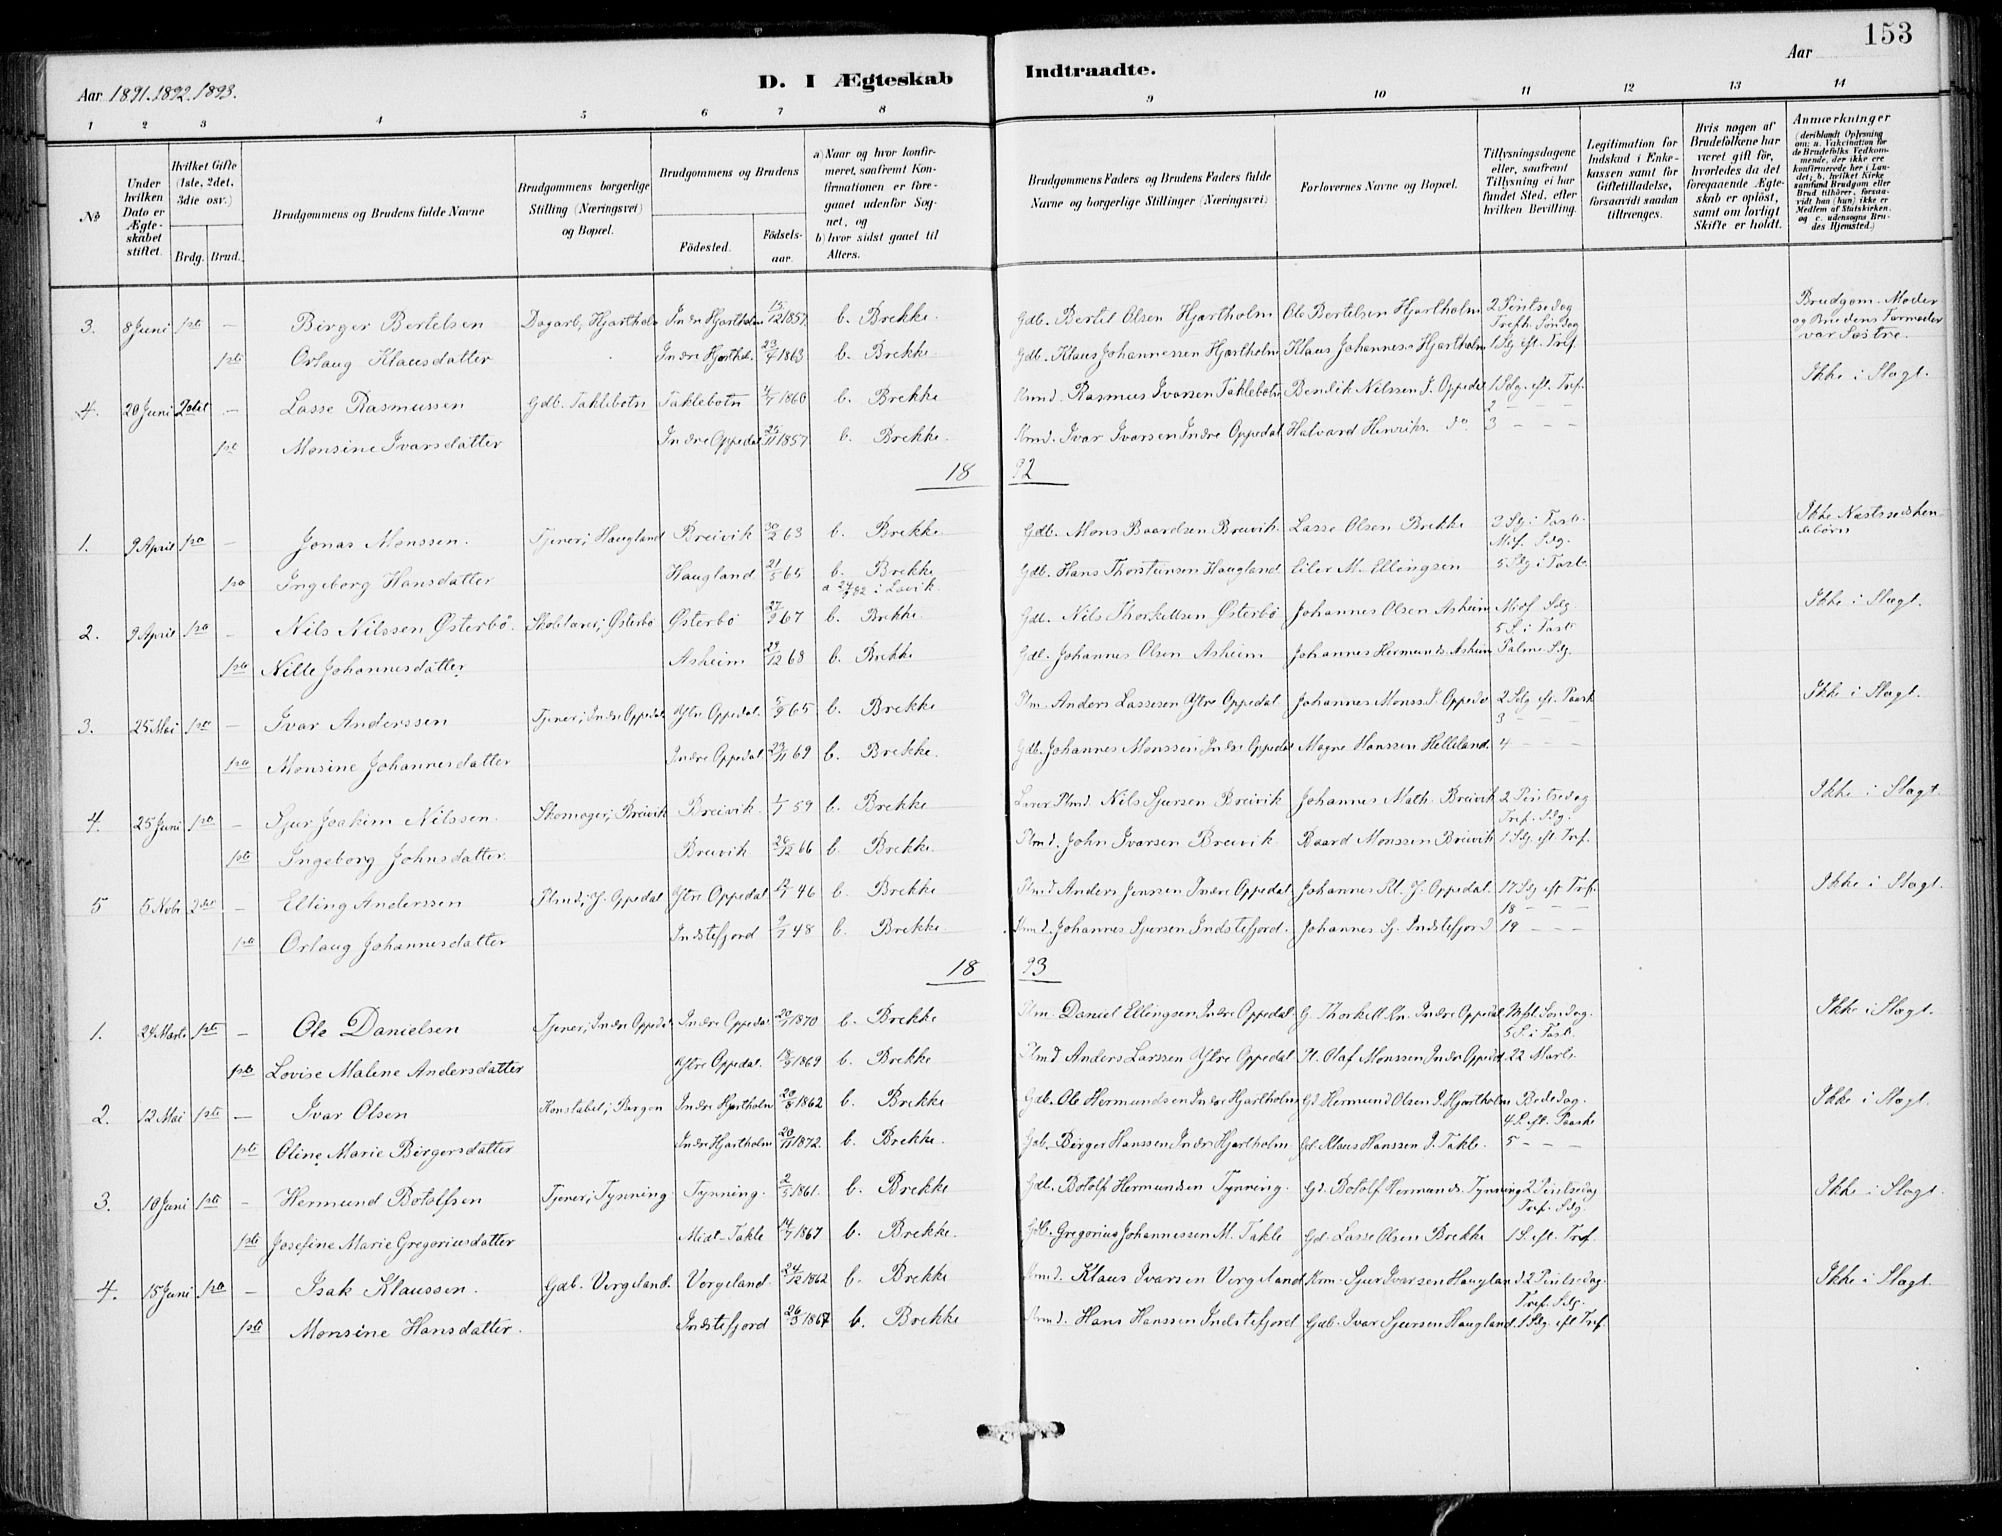 153
Aar 1891. 1892. 1893.
D. I Ægteskab Indtraadte.
Aar
1 2 3 4 5 6 7 8 9 10 11 12 13 14
No
Under hvilken Dato er Ægteskabet stiftet.
Hvilket Gifte (1ste, 2det, 3die osv.)
Brdg. Brud.
Brudgommens og Brudens fulde Navne
Brudgommens borgerlige Stilling (Næringsvei) og Bopæl.
Brudgommens og Brudens
Födested. Födsels-aar.
a) Naar og hvor konfirmeret, saafremt Konfirmationen er foregaaet udenfor Sognet, og b) hvor sidst gaaet til Alters.
Brudgommens Faders og Brudens Faders fulde Navne og borgerlige Stillinger (Næringsvei)
Forlovernes Navne og Bopæl.
Tillysningsdagene eller, saafremt Tillysning ei har fundet Sted, efter hvilken Bevilling.
Legitimation for Indskud i Enkekassen samt for Giftetilladelse, forsaavidt saadan tiltrænges.
Hvis nogen af Brudefolkene har været gift för, hvorledes da det foregaaende Ægteskab er oplöst, samt om lovligt Skifte er holdt.
Anmærkninger (deriblandt Oplysning om: a. Vakcination for de Brudefolks Vedkommende, der ikke ere konfirmerede her i Landet; b. hvilket Kirkesamfund Brudgom eller Brud tilhörer, forsaavidt han (hun) ikke er Medlem af Statskirken, og c. udensogns Brudes Hjemsted.)
3. 8 Juni 1ste — Birger Bertelsen Dagarb, Hjartholm Indre Hjartholm 15/12 1857 b. Brekke Gdb. Bertil Olsen Hjartholm Ole Bertelsen Hjartholm 2 Pintsedag Trefh. Söndag Brudgom. Moder og Brudens Farmoder var Søstre.
1ste Orlaug Klausdatter Indre Hjarthol. 23/4 1863 b. Brekke Gdb. Klaus Johannessen Hjartholm Klaus Johannes. Hjartholm 1 Sdg eft. Tref.
4. 20 Juni 2det — Lasse Rasmussen Gdb. Taklebotn Taklebotn 4/7 1860 b. Brekke Krmd. Rasmus Ivarsen Taklebotn Bendik Nilssen I. Oppedal 1 Sdg. eft. Tref. Ikke i Slægt.
2 — — —
1ste Monsine Ivarsdatter Indre Oppedal 25/11 1857 b. Brekke Krmd. Ivar Ivarsen Indre Oppedal Halvard Henriks. do. 3 — — —
18 92
1. 9 April 1ste — Jonas Monssen. Tjener, Haugland Breivik 30/2 63 b. Brekke Gdb. Mons Baardsen Breivik Lasse Olsen Brekke 3 Sg i Faste. Mif. Sdg. Ikke Næstsødskendebörn
1ste Ingeborg Hansdatter Haugland 21/5 65 b. Brekke Gdb. Hans Thorstensen Haugland Eiler M. Ellingsen 5 Sdg i Faste.
a 24/9 82 i Lavik.
2. 9 April 1ste — Nils Nilssen Østerbö. Skolelærer, Østerbö Østerbö 27/9 67 b. Brekke Gdb. Nils Thorkelsen Østerbö Johannes Olsen Asheim Midf. Sdg. 5 S. i Faste Ikke i Slægt.
1ste Nille Johannesdatter. Asheim 29/12 68 b. Brekke Gdb. Johannes Olsen Asheim Johannes Hermunds. Asheim Palme Sdg.
3. 25 Mai 1ste — Ivar Anderssen Tjener, Indre Oppedal Ytre Oppedal. 5/9 65 b. Brekke Plm. Anders Lassesen Ytre Oppedal Johannes Monss. I. Oppeda 2 Sdg eft. Paask Ikke i Slægt.
3 — —
1ste Monsine Johannesdatter Indre Oppedal 23/11 69 b. Brekke. Gdb. Johannes Monssen Indre Oppedal Magne Hanssen Helleland. 4 — — —
4. 25 Juni 1ste — Sjur Joakim Nilssen. Skomager, Breivik Breivik. 1/1 59 b. Brekke Lærer Plmd. Nils Sjursen Breivik Johannes Math. Breivik 2 Pintsedag Tref. Sdg. Ikke i Slægt.
1ste Ingeborg Johnsdatter. Breivik 26/12 66 b. Brekke Plmd. John Ivarsen Breivik. Baard Monssen Breivik 1 Sdg eft Tref.
5 5 Novb 2det — Elling Anderssen Plmd, Y. Oppedal Ytre Oppedal 46 b. Brekke Plmd. Anders Jenssen Indre Oppedal. Johannes Kl. Y. Oppedal. 17 Sdg eft Tref. Ikke i Slægt.
18 — — —
1ste Orlaug Johannesdatter Indstefjord 48 b. Brekke Krmd. Johannes Sjursen Indstefjord. Johannes Sj. Indstefjord 19 — — —
18 93
1. 24 Marts 1ste — Ole Danielsen Tjener, Indre Oppedal Indre Oppedal. 20/1 1870 b. Brekke Plm. Daniel Ellingsen Indre Oppedal G. Thorkell Kn. Indre Oppedal Mfst. Söndag. 5 S. i Faste Ikke i Slægt.
1ste Lovise Malene Andersdatter Ytre Oppedal. 1869 b. Brekke Plmd Anders Larssen Ytre Oppedal Pl. Olaf Monssen Indre Oppedal 22 Marts.
2. 12 Mai 1ste — Ivar Olsen Konstabel, Bergen Indre Hjartholm 20/8 1862 b. Brekke Gdb. Ole Hermundsen Indre Hjartholm Gd. Hermund Olsen I. Hjartholm Bededag. 4 S. eft. Paaske Ikke i Slægt.
1ste Oline Marie Birgersdatter Indre Hjartholm 20/11 1872. b. Brekke. Gdb. Birger Hanssen Indre Hjartholm Gd. Klaus Hanssen I. Takle. 5 — — —
3. 10 Juni 1ste — Hermund Botolfsen Tjener, Tynning Tynning. 2/3 1861. b. Brekke Gdb. Botolf Hermundsen Tynning. Gd. Botolf Hermunds. Tynning 2 Pintsedag Tref. Sdg. Ikke i Slægt.
1ste Josefine Marie Gregoriusdatter Midt-Takle 14/7 1867 b. Brekke. Gdb. Gregorius Johannessen M. Takle Gd. Lasse Olsen Brekke 1 S. eft. Tref.
4. 15 Juni 1ste — Isak Klaussen. Gdb. Vergeland. Vergeland. 24/12 1862 b. Brekke Krmd. Klaus Ivarsen Vergeland Krm. Sjur Ivarsen Haugland. 2 Pintsedag. Tref. Sdg. Ikke i Slægt.
1ste Monsine Hansdatter. Indstefjord 26/3 1867 b. Brekke Krmd. Hans Hanssen Indstefjord Gdb. Ivar Sjursen Haugland. 1 Sdg. eft Tref.